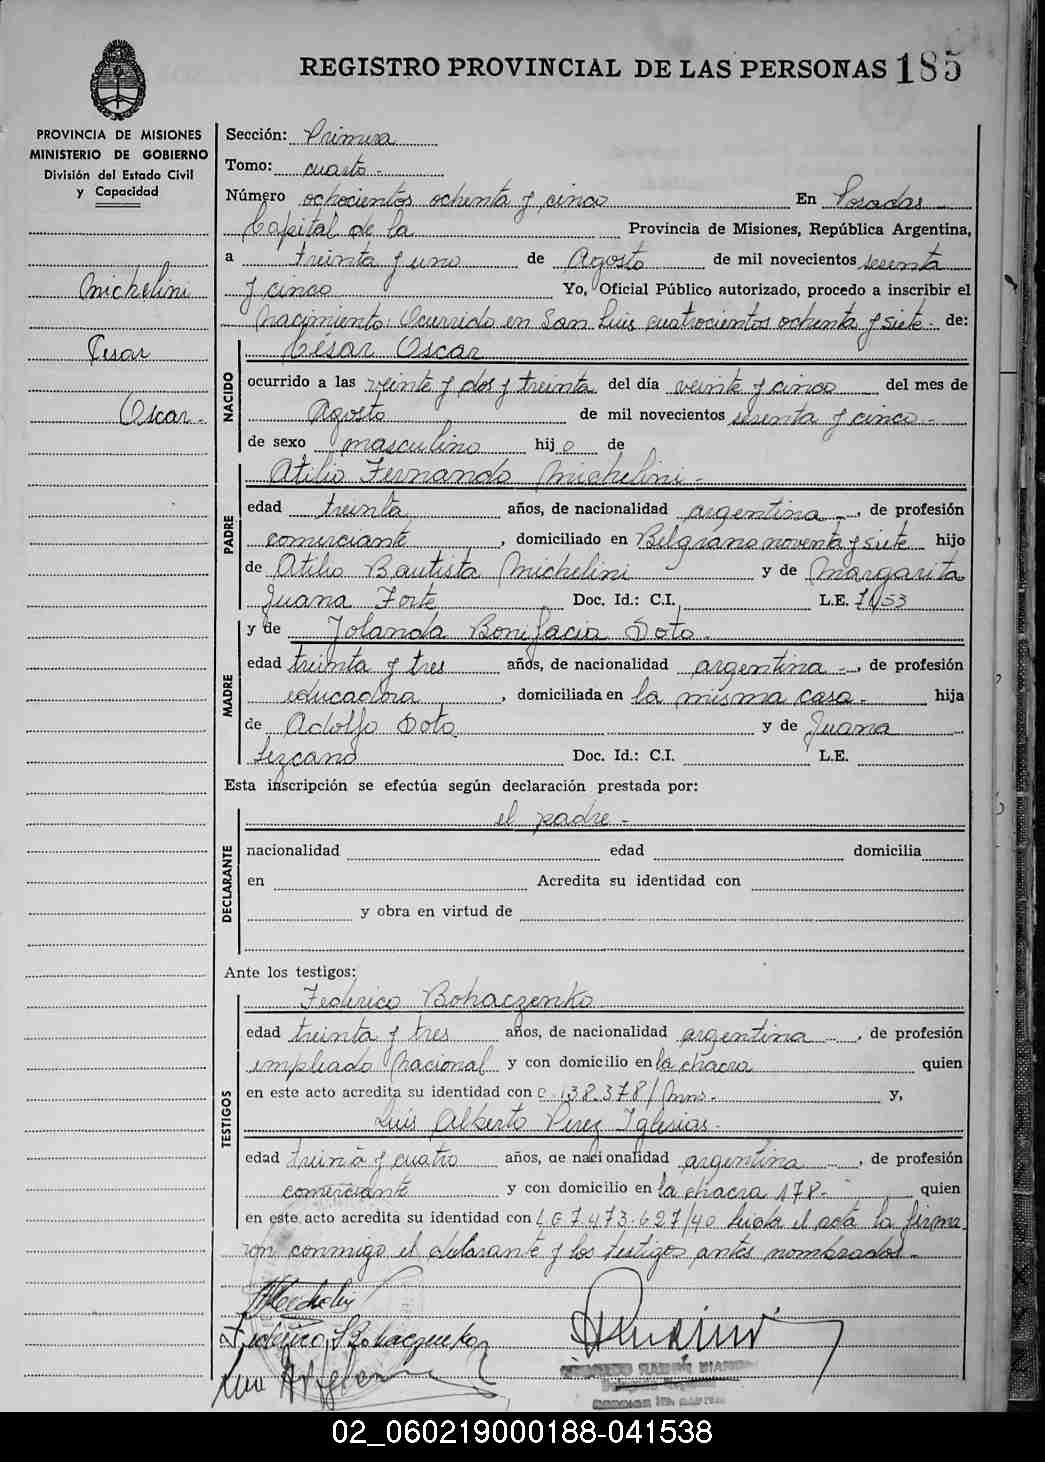 REGISTRO PROVINCIAL DE LAS PERSONAS 185
PROVINCIA DE MISIONES
MINISTERIO DE GOBIERNO
División del Estado Civil
y Capacidad
Michelini
Cesar
Oscar.-
Sección: Primera
Tomo: cuarto.-
Número ochocientos ochenta y cinco En Posadas -
Capital de la Provincia de Misiones, República Argentina,
a treinta y uno de Agosto de mil novecientos sesenta
y cinco Yo, Oficial Público autorizado, procedo a inscribir el
Nacimiento: Ocurrido en San Luis cuatrocientos ochenta y siete.- de:
NACIDO
César Oscar
ocurrido a las veinte y dos y treinta del día veinte y cinco del mes de
Agosto de mil novecientos sesenta y cinco -
de sexo masculino hijo de
PADRE
Atilio Fernando Michelini -
edad treinta años, de nacionalidad argentina -, de profesión
comerciante, domiciliado en Belgrano noventa y siete hijo
de Atilio Bautista Michelini y de Margarita
Juana Forte Doc. Id.: C.I. L.E.
MADRE
y de Yolanda Bonifacia Soto.
edad treinta y tres años, de nacionalidad argentina -, de profesión
educadora, domiciliada en la misma casa.- hija
de Adolfo Soto y de Juana
Lezcano Doc. Id.: C.I. L.E.
Esta inscripción se efectúa según declaración prestada por:
DECLARANTE
el padre -
nacionalidad edad domicilia
en Acredita su identidad con
y obra en virtud de
Ante los testigos:
TESTIGOS
Federico Bohaczenko
edad treinta y tres años, de nacionalidad argentina -, de profesión
empleado Nacional y con domicilio en la chacra quien
en este acto acredita su identidad con 138.378/Mns.- y,
Luis Alberto Perez Iglesias.
edad treinta y cuatro años, de nacionalidad argentina -, de profesión
comerciante y con domicilio en la chacra 178- quien
en este acto acredita su identidad con 7.473.627/40 leida el acta la firma
ron conmigo el declarante y los testigos antes nombrados.-
Federico Bohaczenko
02_060219000188-041538